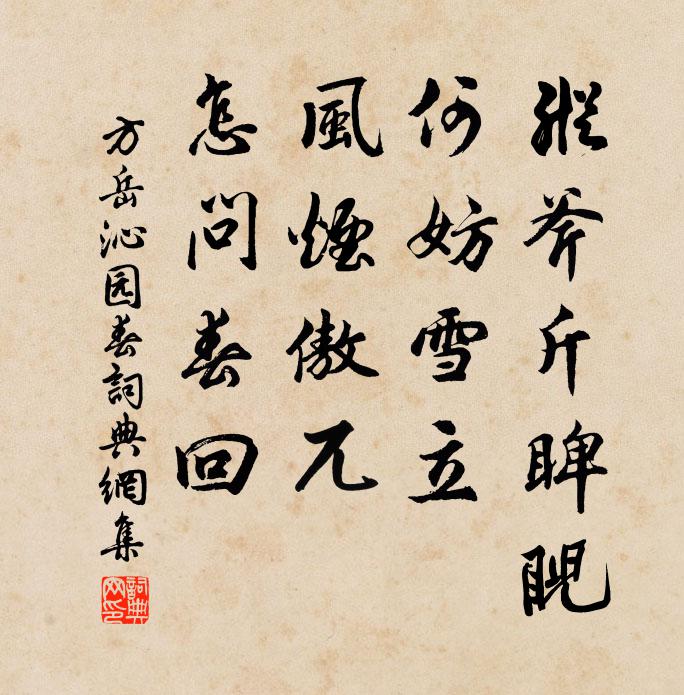 縱斧斤睥睨
何妨雪立
風煙傲兀
怎問春回
方岳沁园春詞典網集
詞典網印